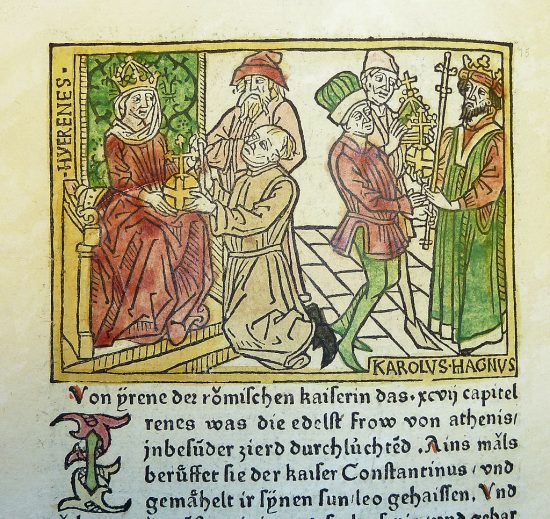 HYERENES·
KAROLVS·MAGNVS
Von ÿrene der rőmischen kaiserin das .xcvij capitel
Irenes was die edelst frow von athenis/
jnbesűder zierd durchlúchtēd. Ains māls
berűffet sie der kaiser Constantinus/ vnd
gemåhelt ir sÿnen sun/leo gehaissen. Vnd